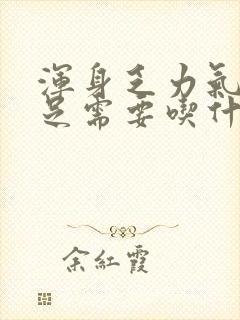 渾身乏力氣
足需要喫什
余紅霞